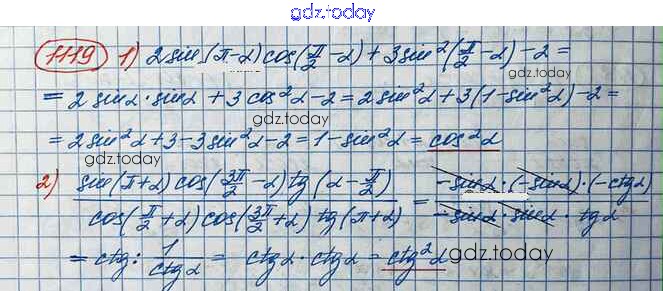 gdz.today
1119 1) 2 sin(π-α) cos(π/2 -α) + 3 sin²(π/2 -α) - 2 =
gdz.today
= 2 sinα·sinα + 3 cos²α - 2 = 2 sin²α + 3(1-sin²α) - 2 =
gdz.today
= 2 sin²α + 3 - 3 sin²α - 2 = 1 - sin²α = cos²α
gdz.today
2) sin(π+α) cos(3π/2 -α) tg(α - π/2) / cos(π/2 +α) cos(3π/2 +α) tg(π+α) = -sinα·(-sinα)·(-ctgα) / -sinα·sinα·tgα
gdz.today
= ctg : 1/ctgα = ctgα·ctgα = ctg²α
gdz.today